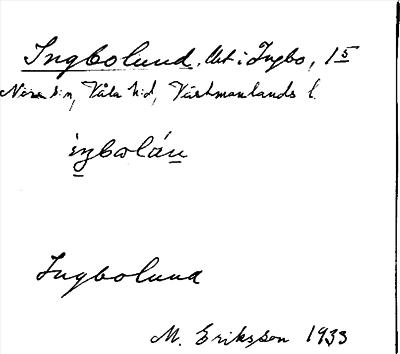 Ingbolund, Utt i Ingbo, 15
Nora s:n, Våla h:d, Västmanlands l.
iŋbolún
Ingbolund
M. Eriksson 1933